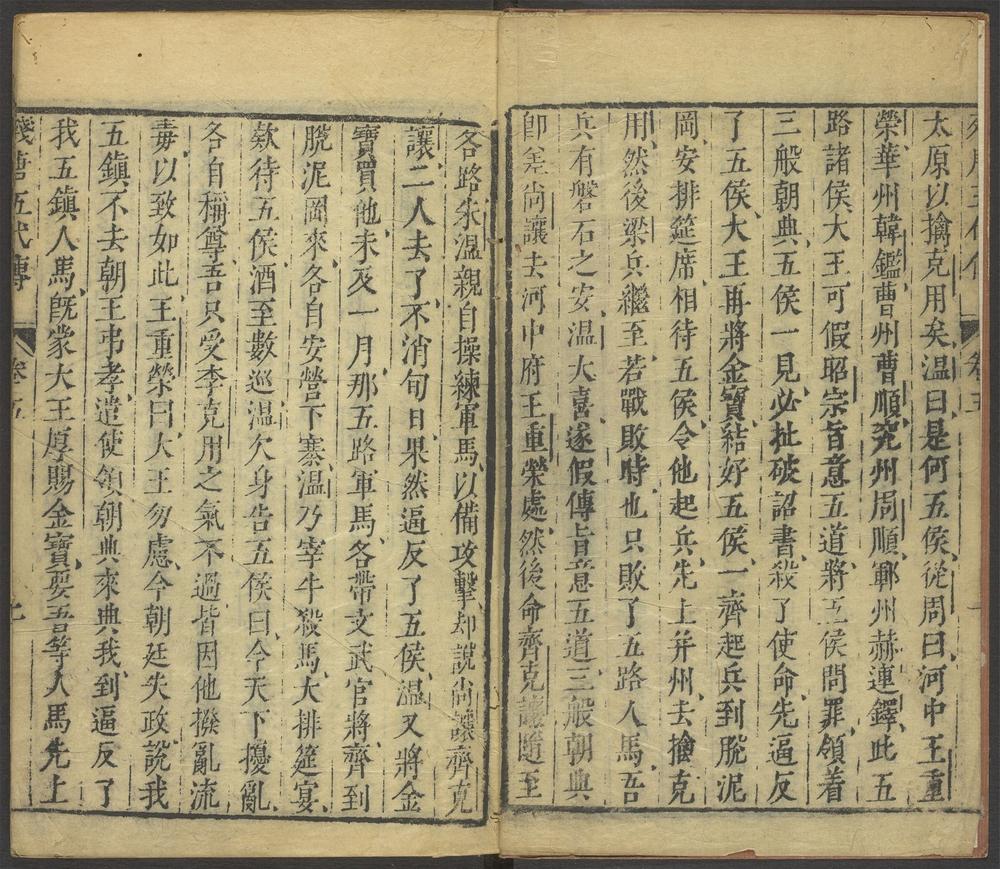 太原以擒克用矣温曰是何五侯從周曰河中王重
榮華州韓鑑曹州曹順兖州周順鄆州赫連鐸此五
路諸侯大王可假昭宗旨意五道將五侯問罪領着
三般朝典五侯一見必扯破詔書殺了使命先逼反
了五侯大王再將金寶結好五侯一齊起兵到脫泥
岡安排筵席相待五侯令他起兵先上并州去擒克
用然後梁兵繼至若戰敗時也只敗了五路人馬吾
兵有磐石之安温大喜遂假傳旨意五道三般朝典
卽差尚讓去河中府王重榮處然後命齊克讓隨至
各路朱温親自操練軍馬以備攻擊却説尚讓齊克
讓二人去了不消旬日果然逼反了五侯温又將金
寶買他未及一月那五路軍馬各帶文武官將齊到
脫泥岡來各自安營下寨温乃宰牛殺馬大排筵宴
欵待五侯酒至數巡温欠身告五侯曰今天下擾亂
各自稱尊吾只受李克用之氣不過皆因他撥亂流
毒以致如此王重榮曰大王勿慮今朝廷失政説我
五鎮不去朝王弔孝遣使領朝典來典我到逼反了
我五鎮人馬旣蒙大王厚賜金寶要吾等人馬先上
殘唐五代傳 卷五